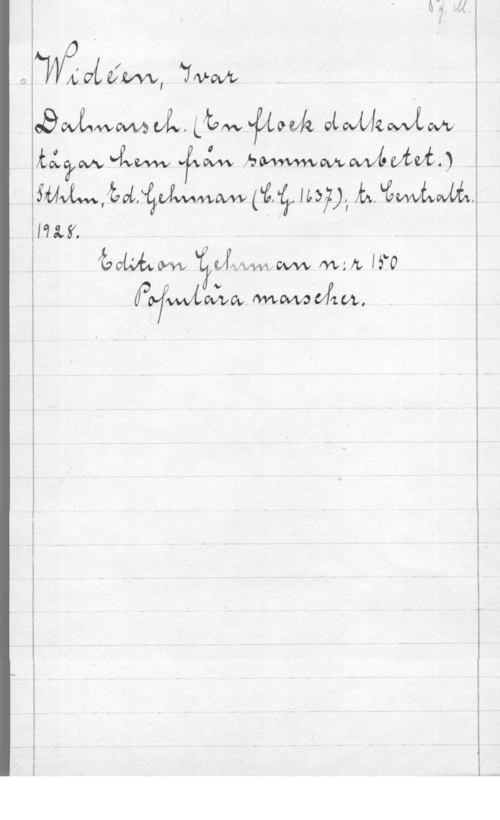 Pf. M.
Widéen, Ivar
Dalmarsch. (En flock dalkarlar
tågar hem från sommararbetet.)
Sthlm, Ed. Gehrman (E.G. 1637); tr. Centraltr.
1928.
Edition Gehrman n:r 150
Populära marscher.